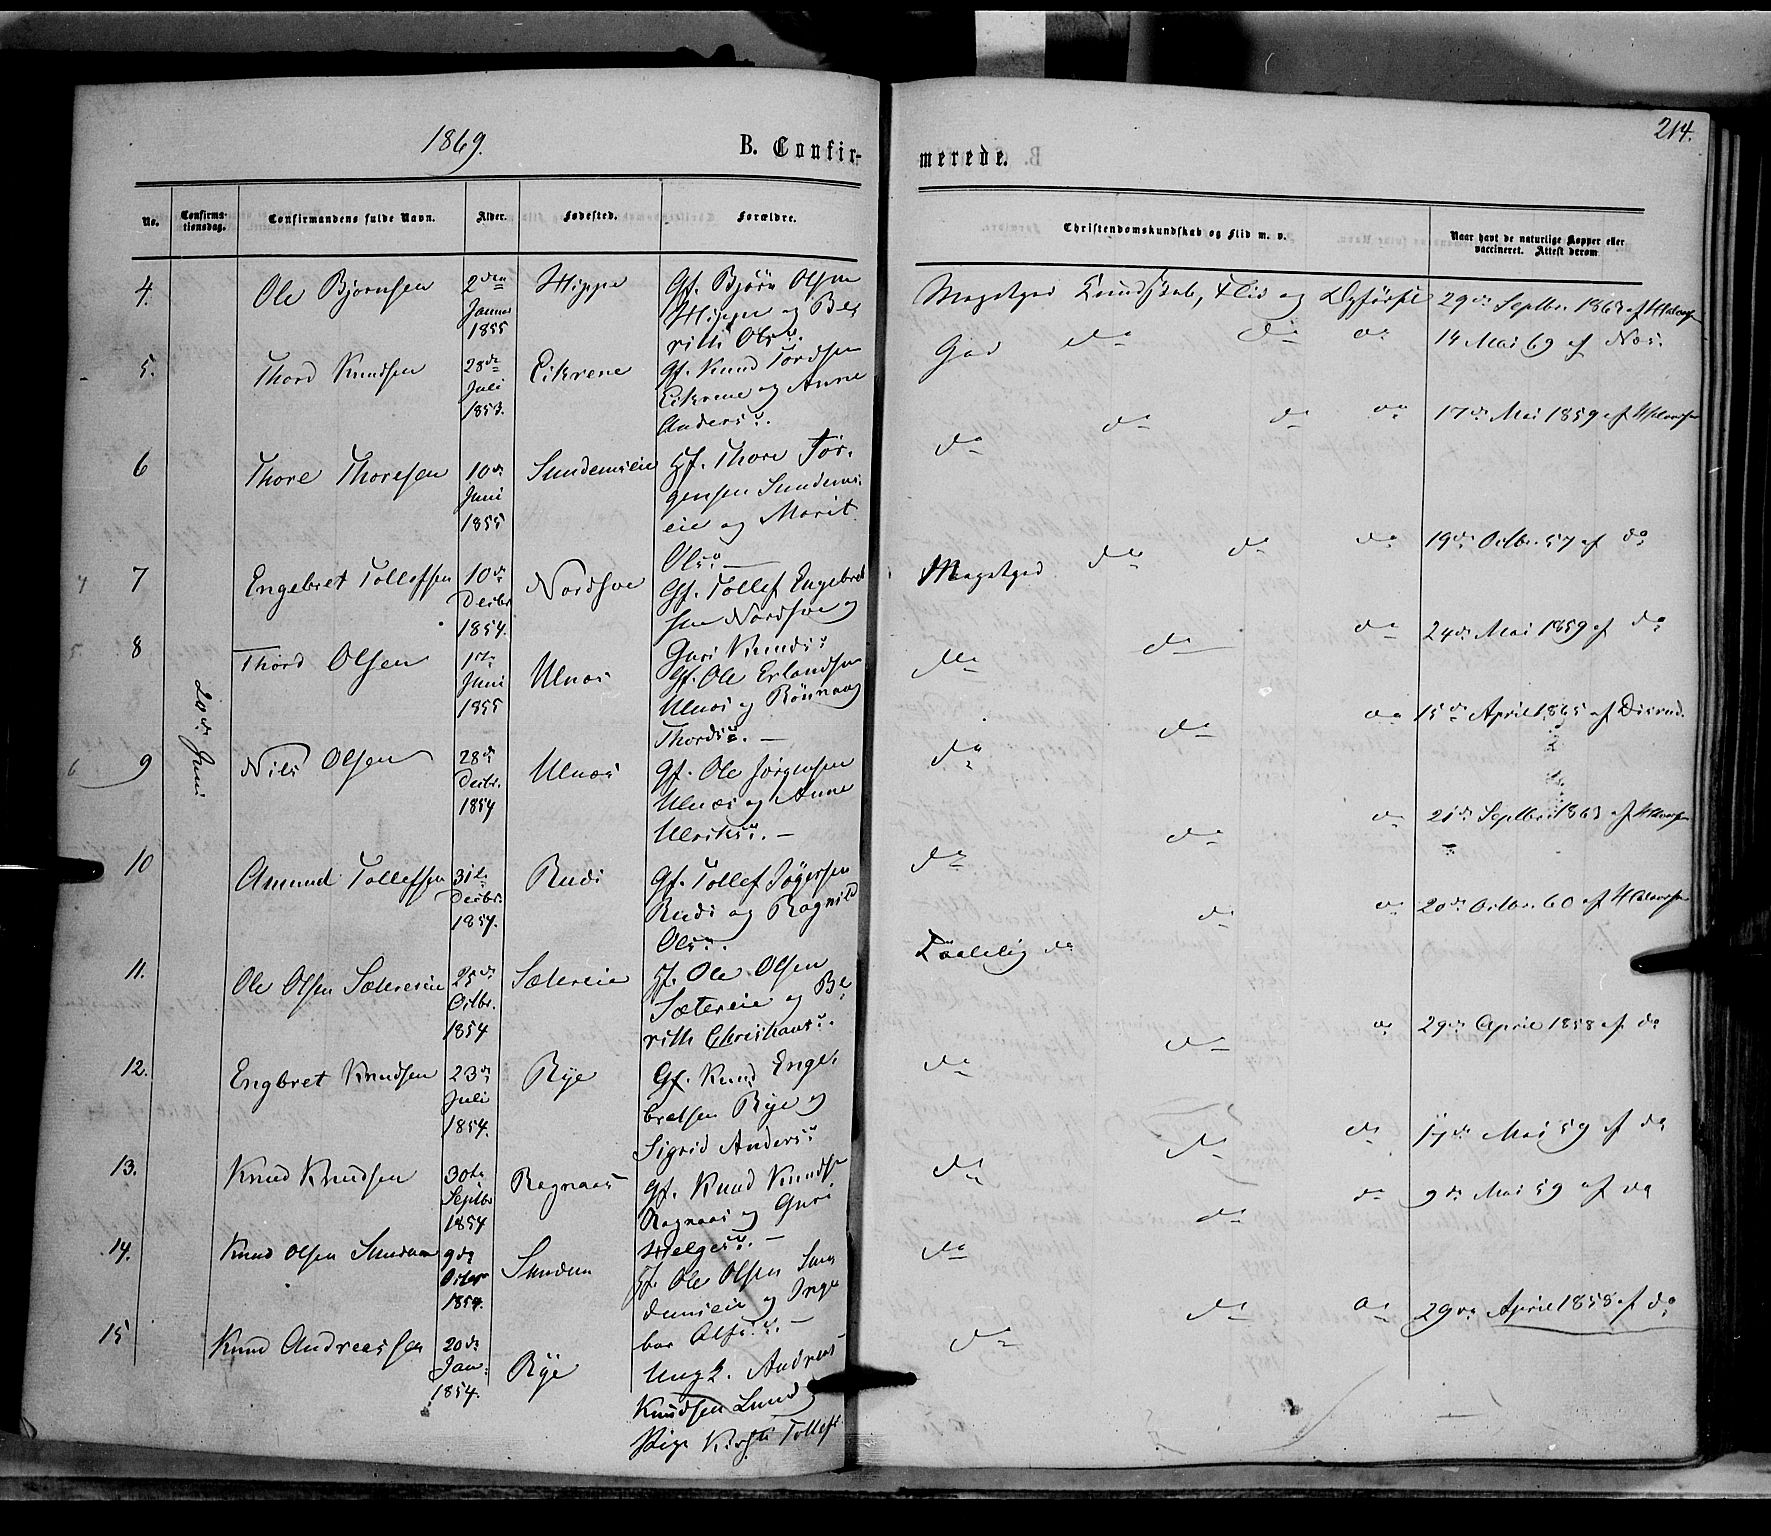 1869.
B. Confir-
merede.
214.
No.
Confirma-
tionsdag.
Confirmandens fulde Navn.
Alder.
Fødested.
Forældre.
Christendomskundskab og Flid m. v.
Naar havt de naturlige Kopper eller
vaccineret. Attest derom
20de Juni
4.
Ole Bjørnsen
2den
Januar
1855
Hippe
Gf. Bjørn Olsen
Hippe og Be
rith Olsd.
Megetgod Kundskab, Flid og Opførsel
29de Septbr. 1863 af Halvorsen
5.
Thord Knudsen
28de
Juli
1853.
Eikrene
Gf. Knud Tordsen
Eikrene og Anne
Andersd.
God do do do
14 Mai 69 af Næs.
6
Thore Thoresen
10de
Juni
1855
Sundemseie
Hf. Thore Jør-
gensen Sundems-
eie og Marit
Olsd. —
do do do do
17de Mai 1859 af Halvorsen
7
Engebret Tollefsen
10de
Decbr
1854.
Nordsve
Gf. Tollef Engebret
sen Nordsve og
Guri Knudsd
Megetgod do do do
19de Octbr. 57 af do
8
Thord Olsen
1ste
Juni
1855
Ulnæs
Gf. Ole Erlandsen
Ulnæs og Rønnaug
Thordsd. —
do do do
24de Mai 1859 af do
9
Nils Olsen
28de
Decbr.
1854
Ulnæs
Gf. Ole Jørgensen
Ulnæs og Anne
Ulriksd. —
do do do
15de April 1865 af Disrud.
10
Amund Tollefsen
31te
Decbr.
1854.
Rudi
Gf. Tollef
Rudi og Ragnild
Olsd.
do do do
21de Septbr 1863 af Halvorsen
11.
Ole Olsen Sætereie
25de
Octbr.
1854
Sætereie
Hf. Ole Olsen
Sætereie og Be
rith Christiansd.
Taalelig do do do
20de Octbr. 60 af Halvorsen
12.
Engbret Knudsen
23de
Juli
1854.
Rye
Gf. Knud Enge-
bretsen Rye og
Sigrid Andersd
do do do
29de April 1858 af do
13.
Knud Knudsen
30te
Septbr
1854
Rognaas
Gf. Knud Knudsen
Rognaas og Guri
Helgesd. —
do do do
17de Mai 59 af do
14.
Knud Olsen Sundem
9de
Octbr
1854.
Sundem
Hf. Ole Olsen Sun
demseie og Inge
bor Olsd. —
do do do
9de Mai 59 af do
15
Knud Andreassen
20de
Jan.
1854.
Rye
Ungk. Andreas
Knudsen Lund
Pige Kirsti Tollefs
do do do
29de April 1858 af do